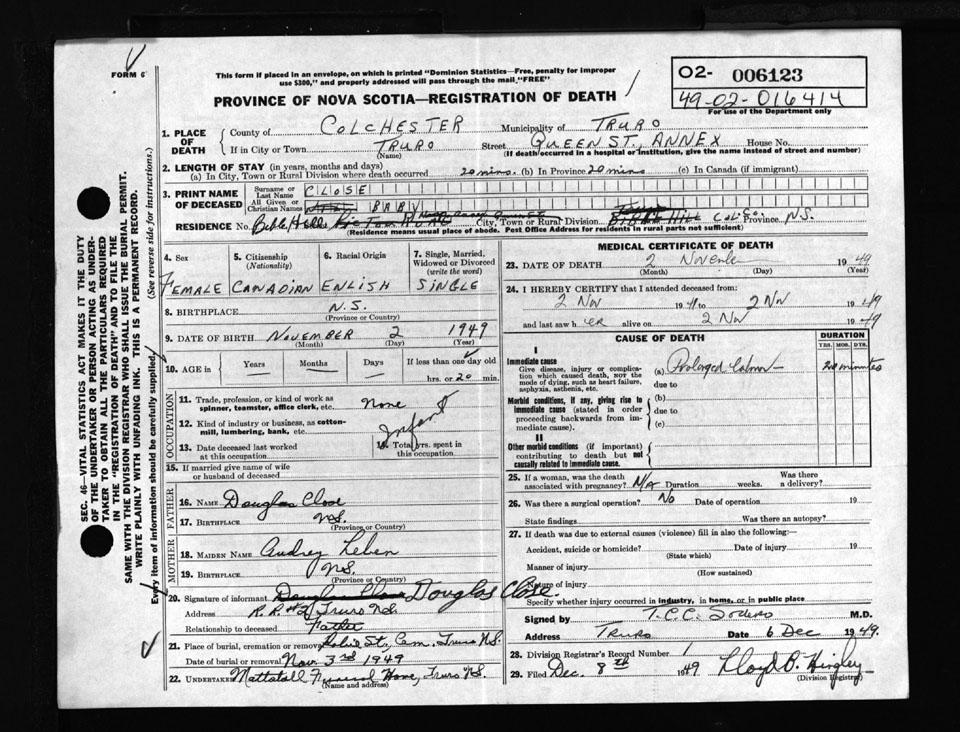 FORM 6
This form if placed in an envelope, on which is printed "Dominion Statistics—Free, penalty for improper
use $300," and properly addressed will pass through the mail "FREE"
PROVINCE OF NOVA SCOTIA—REGISTRATION OF DEATH
02- 006123
49-02-016414
For use of the Department only
1. PLACE OF DEATH County of COLCHESTER Municipality of TRURO
If in City or Town TRURO Street QUEEN ST., ANNEX House No.
(Name) (If death occurred in a hospital or institution, give the name instead of street and number)
2. LENGTH OF STAY (in years, months and days)
(a) In City, Town or Rural Division where death occurred 20 mins. (b) In Province 20 mins (c) In Canada (if immigrant)
3. PRINT NAME OF DECEASED Surname or Last Name CLOSE
All Given or Christian Names BABY
RESIDENCE No. Bible Hill City, Town or Rural Division Col. Co. Province N.S.
(Residence means usual place of abode. Post Office Address for residents in rural parts not sufficient)
4. Sex 5. Citizenship (Nationality) 6. Racial Origin 7. Single, Married, Widowed or Divorced (write the word)
FEMALE CANADIAN ENLISH SINGLE
8. BIRTHPLACE N.S.
(Province or Country)
9. DATE OF BIRTH NOVEMBER 2 1949
(Month) (Day) (Year)
10. AGE in Years Months Days If less than one day old
hrs. or 20 min.
OCCUPATION
11. Trade, profession, or kind of work as spinner, teamster, office clerk, etc. None
12. Kind of industry or business, as cotton-mill, lumbering, bank, etc. Infant
13. Date deceased last worked at this occupation 14. Total yrs. spent in this occupation
15. If married give name of wife or husband of deceased
FATHER
16. NAME Douglas Close
17. BIRTHPLACE N.S.
(Province or Country)
MOTHER
18. MAIDEN NAME Audrey
19. BIRTHPLACE N.S.
(Province or Country)
20. Signature of informant Douglas Close Douglas Close.
Address R.R. #2 Truro N.S.
Relationship to deceased Father
21. Place of burial, cremation or removal Robie St. Cem. Truro N.S.
Date of burial or removal Nov. 3rd 1949
22. UNDERTAKER Mattatall Funeral Home, Truro N.S.
(Name and address)
MEDICAL CERTIFICATE OF DEATH
23. DATE OF DEATH 2 November 1949
(Month) (Day) (Year)
24. I HEREBY CERTIFY that I attended deceased from:
2 Nov 1949 to 2 Nov 1949
and last saw her alive on 2 Nov 1949
CAUSE OF DEATH DURATION
YRS. MOS. DYS.
I
Immediate cause
Give disease, injury or complication which caused death, NOT the mode of dying, such as heart failure, asphyxia, asthenia, etc.
(a) Prolonged labour 20 minutes
due to
Morbid conditions, if any, giving rise to immediate cause (stated in order proceeding backwards from immediate cause).
(b)
due to
(c)
II
Other morbid conditions (if important) contributing to death but not causally related to immediate cause.
25. If a woman, was the death associated with pregnancy? N/A Duration weeks. Was there a delivery?
26. Was there a surgical operation? No Date of operation 19
State findings Was there an autopsy?
27. If death was due to external causes (violence) fill in also the following:—
Accident, suicide or homicide? Date of injury 19
(State which)
Manner of injury
(How sustained)
Nature of injury
Specify whether injury occurred in industry, in home, or in public place
Signed by T.C.C. Sodero M.D.
Address TRURO Date 6 Dec 1949.
28. Division Registrar's Record Number 1
29. Filed Dec. 8th 1949 Lloyd B. Hingley
(Division Registrar)
SEC. 46—VITAL STATISTICS ACT MAKES IT THE DUTY
OF THE UNDERTAKER OR PERSON ACTING AS UNDER-
TAKER TO OBTAIN ALL THE PARTICULARS REQUIRED
IN THE "REGISTRATION OF DEATH" AND TO FILE THE
SAME WITH THE DIVISION REGISTRAR WHO SHALL ISSUE THE BURIAL PERMIT.
WRITE PLAINLY WITH UNFADING INK. THIS IS A PERMANENT RECORD.
Every item of information should be carefully supplied. (See reverse side for instructions.)